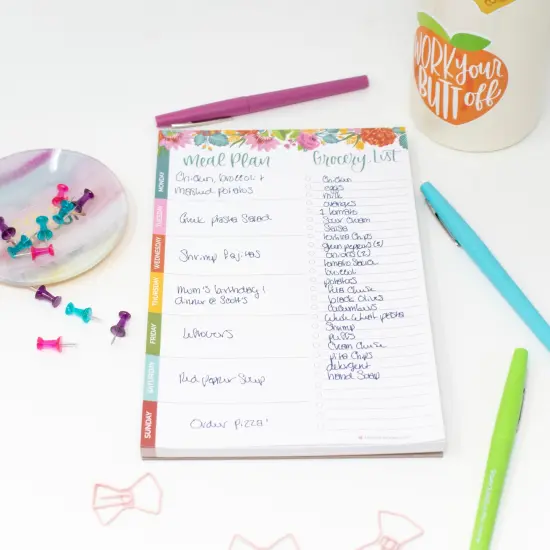 WORK your
BUTT off
Meal Plan
Grocery List
MONDAY
Chicken, broccoli +
mashed potatoes
TUESDAY
Greek pasta Salad
WEDNESDAY
Shrimp Fajitas
THURSDAY
Mom's birthday!
dinner @ Scotts
FRIDAY
Leftovers
SATURDAY
Red pepper Soup
SUNDAY
Order Pizza!
Chicken
eggs
milk
oranges
tomato
Sour Cream
Salsa
tortilla Chips
green peppers (3)
onions (2)
tomato Sauce
broccoli
potatoes
feta Cheese
black Olives
Cucumbers
Whole Wheat pasta
Shrimp
puffs
Cream Cheese
pita Chips
detergent
hand Soap